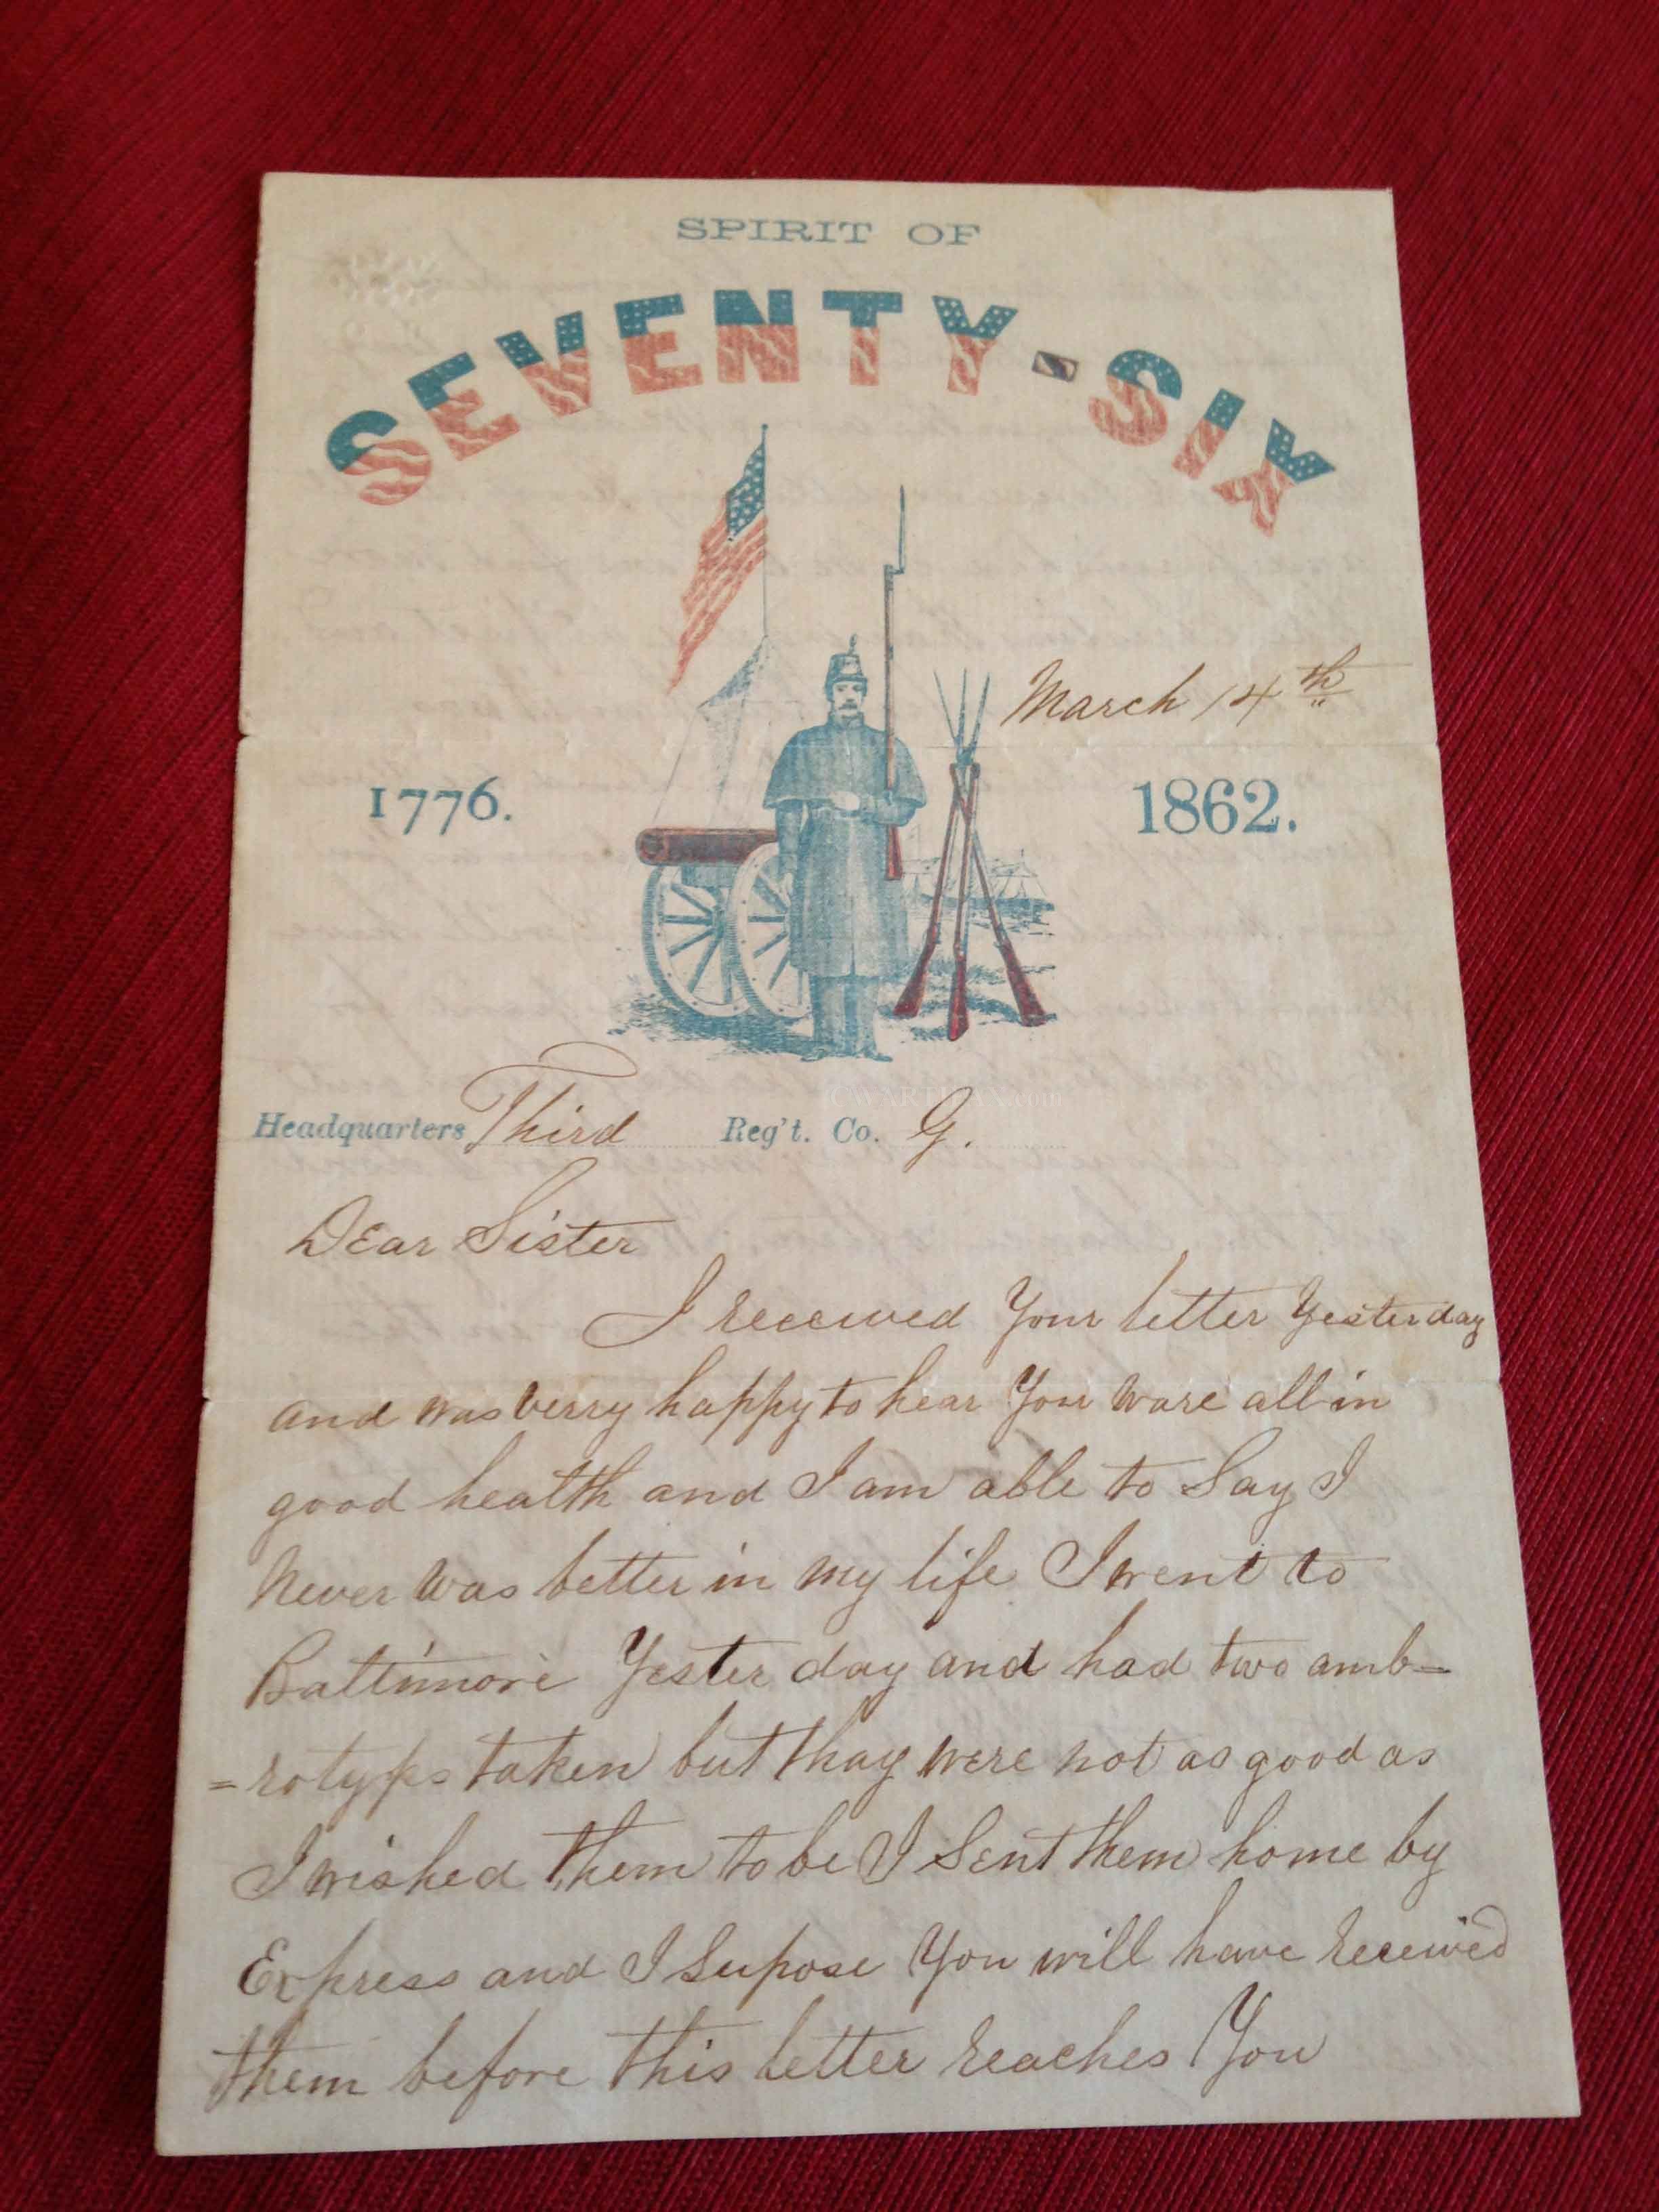 SPIRIT OF
SEVENTY-SIX
March 14th
1776.
1862.
Headquarters Third Reg't. Co. G.
Dear Sister
I received Your letter Yesterday
and was verry happy to hear You ware all in
good health and I am able to Say I
Never was better in my life I went to
Baltimore Yester day and had two amb=
=rotyps taken but thay were not as good as
I wished them to be I Sent them home by
Express and I Supose You will have received
them before this letter reaches You